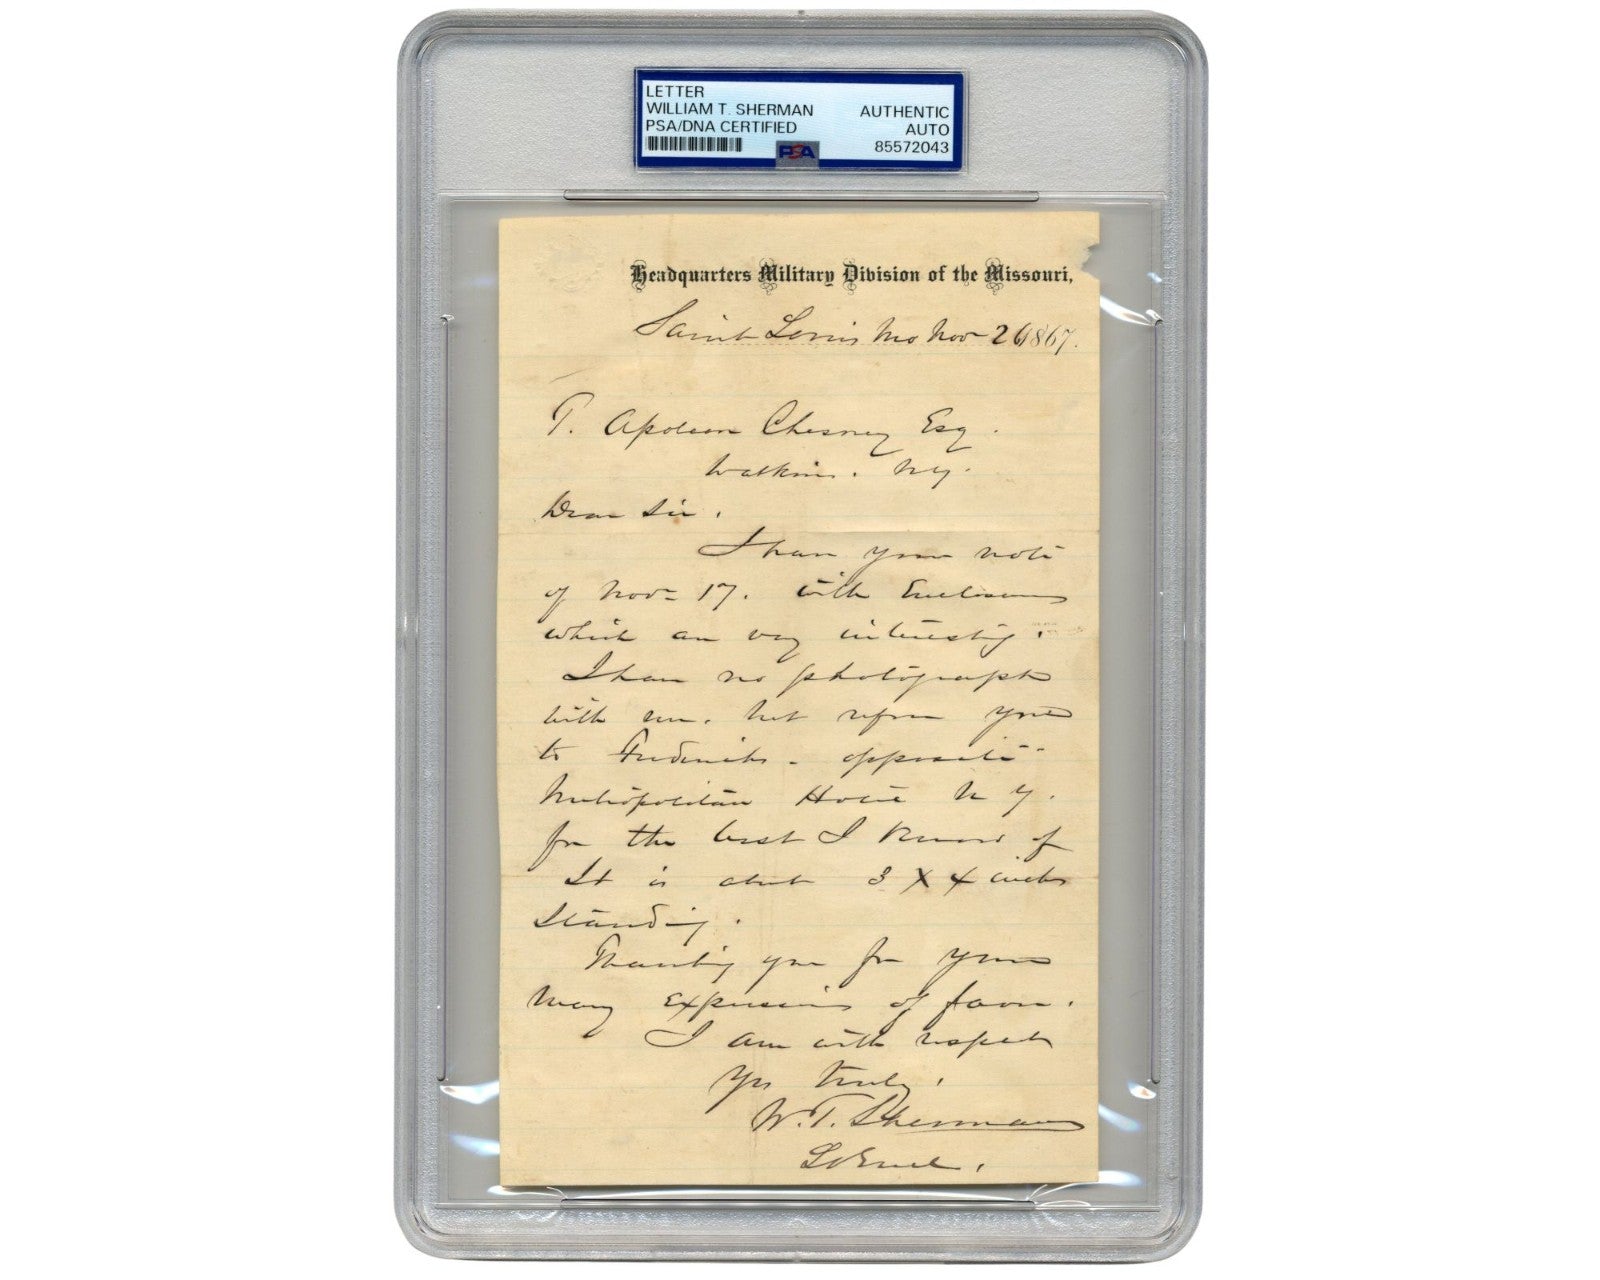 LETTER
WILLIAM T. SHERMAN
PSA/DNA CERTIFIED
AUTHENTIC
AUTO
85572043
PSA
Headquarters Military Division of the Missouri,
Saint Louis Mo Nov 26 1867.
T. Apoleon Chesney Esq.
Watkins. N.Y.
Dear Sir.
I have your note
of Nov 17. with Enclosures
which are very interesting.
I have no photograph
with me. but refer you
to Fredericks - opposite
Metropolitan Hotel N Y.
for the best I know of
It is about 3 X 4 inches
Standing.
Thanking you for your
many expressions of favor.
I am with respect
Yrs truly.
W. T. Sherman
Lt Genl.